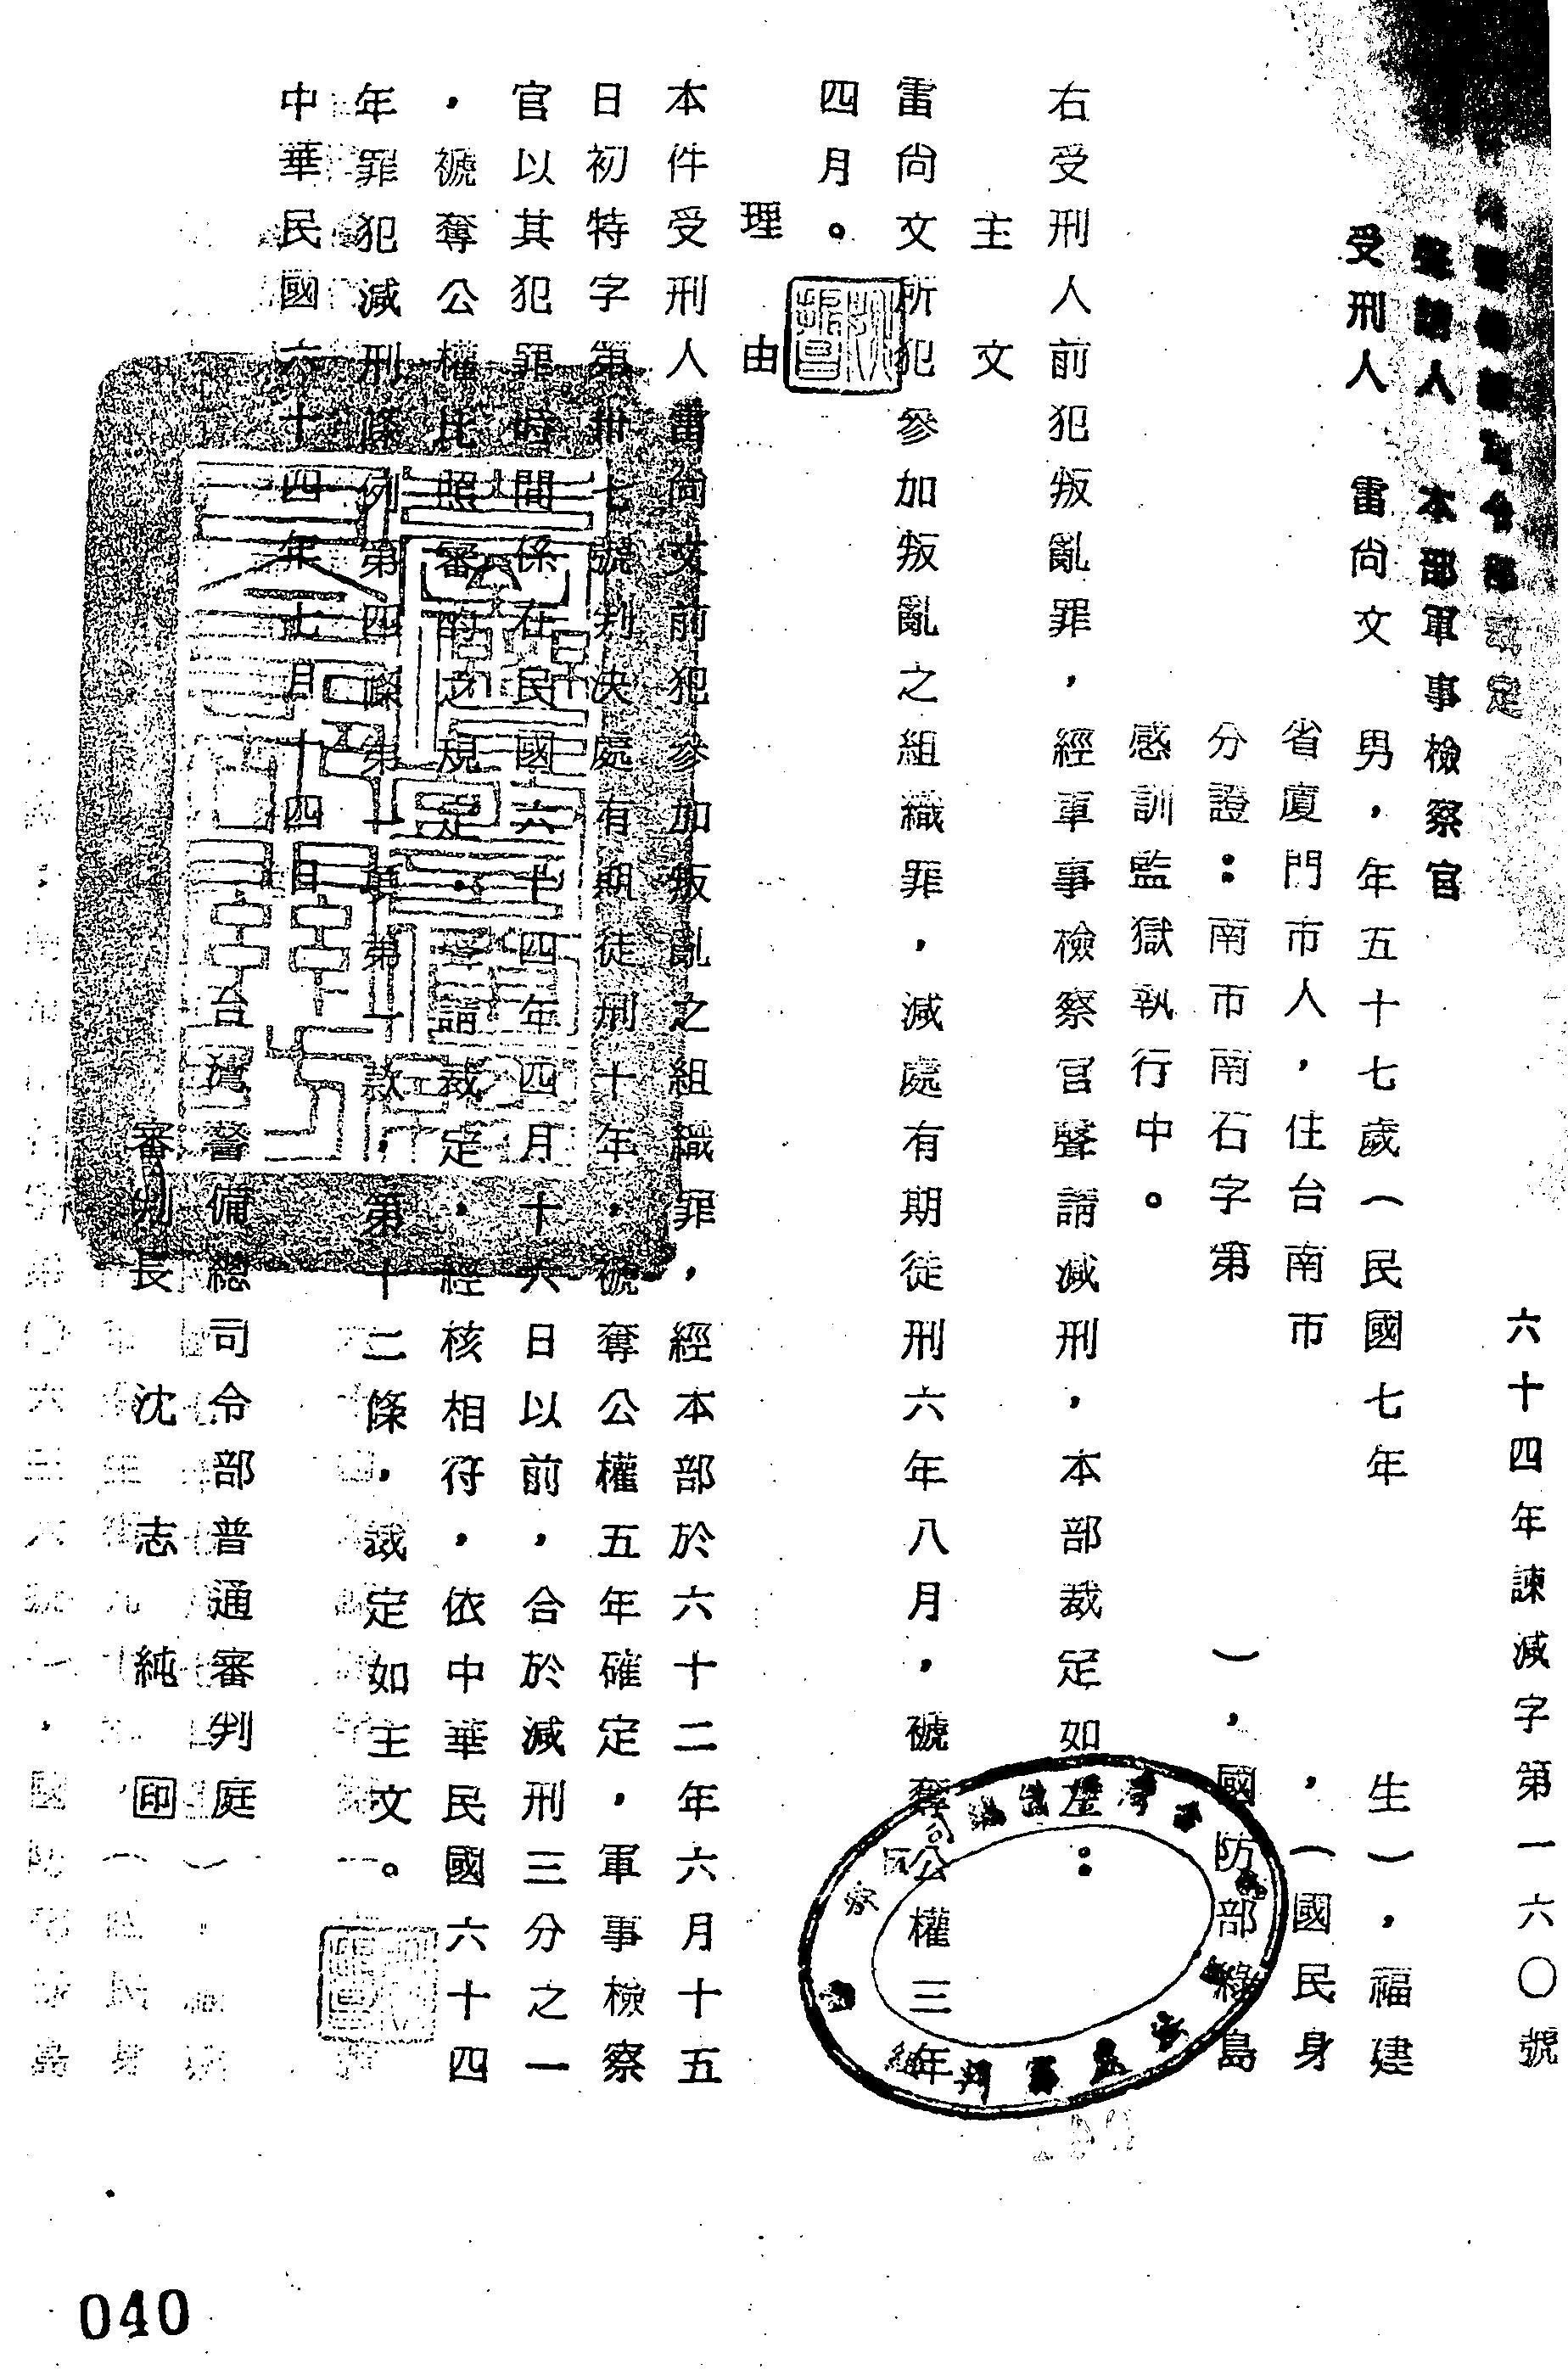 台灣警備總司令部裁定
六十四年諫減字第一六〇號
聲請人 本部軍事檢察官
受刑人 雷尚文 男，年五十七歲（民國七年 生），福建
省廈門市人，住台南市 ，（國民身
分證：南市南石字第 ），國防部綠島
感訓監獄執行中。
右受刑人前犯叛亂罪，經軍事檢察官聲請減刑，本部裁定如左：
主 文
雷尚文所犯參加叛亂之組織罪，減處有期徒刑六年八月，褫奪公權三年
四月。
理 由
本件受刑人雷尚文前犯參加叛亂之組織罪，經本部於六十二年六月十五
日初特字第卅七號判決處有期徒刑十年，褫奪公權五年確定，軍事檢察
官以其犯罪時間係在民國六十四年四月十六日以前，合於減刑三分之一
，褫奪公權比照審酌之規定，聲請裁定，經核相符，依中華民國六十四
年罪犯減刑條例第四條第一項第一款，第十二條，裁定如主文。
中華民國六十四年七月十四日
台灣警備總司令部普通審判庭
審判長 沈 志 純 印
040